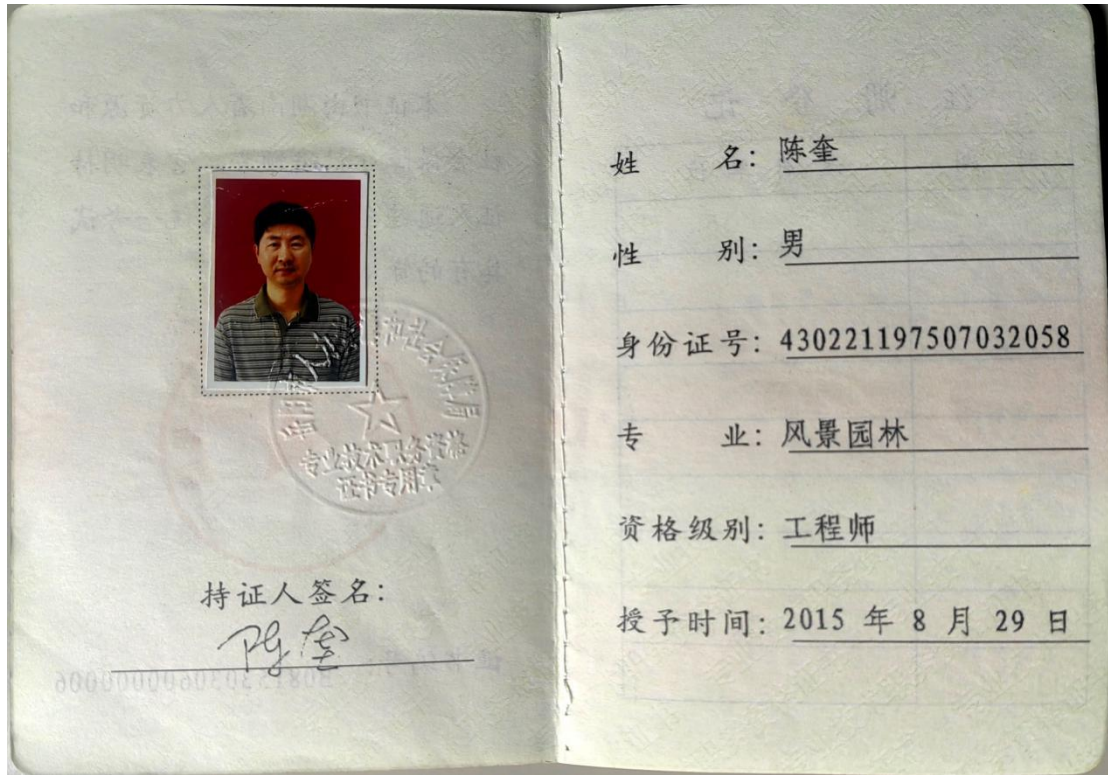 持证人签名：
陈奎
专业技术职务资格
证书专用章
姓 名：陈奎
性 别：男
身份证号：430221197507032058
专 业：风景园林
资格级别：工程师
授予时间：2015 年 8 月 29 日